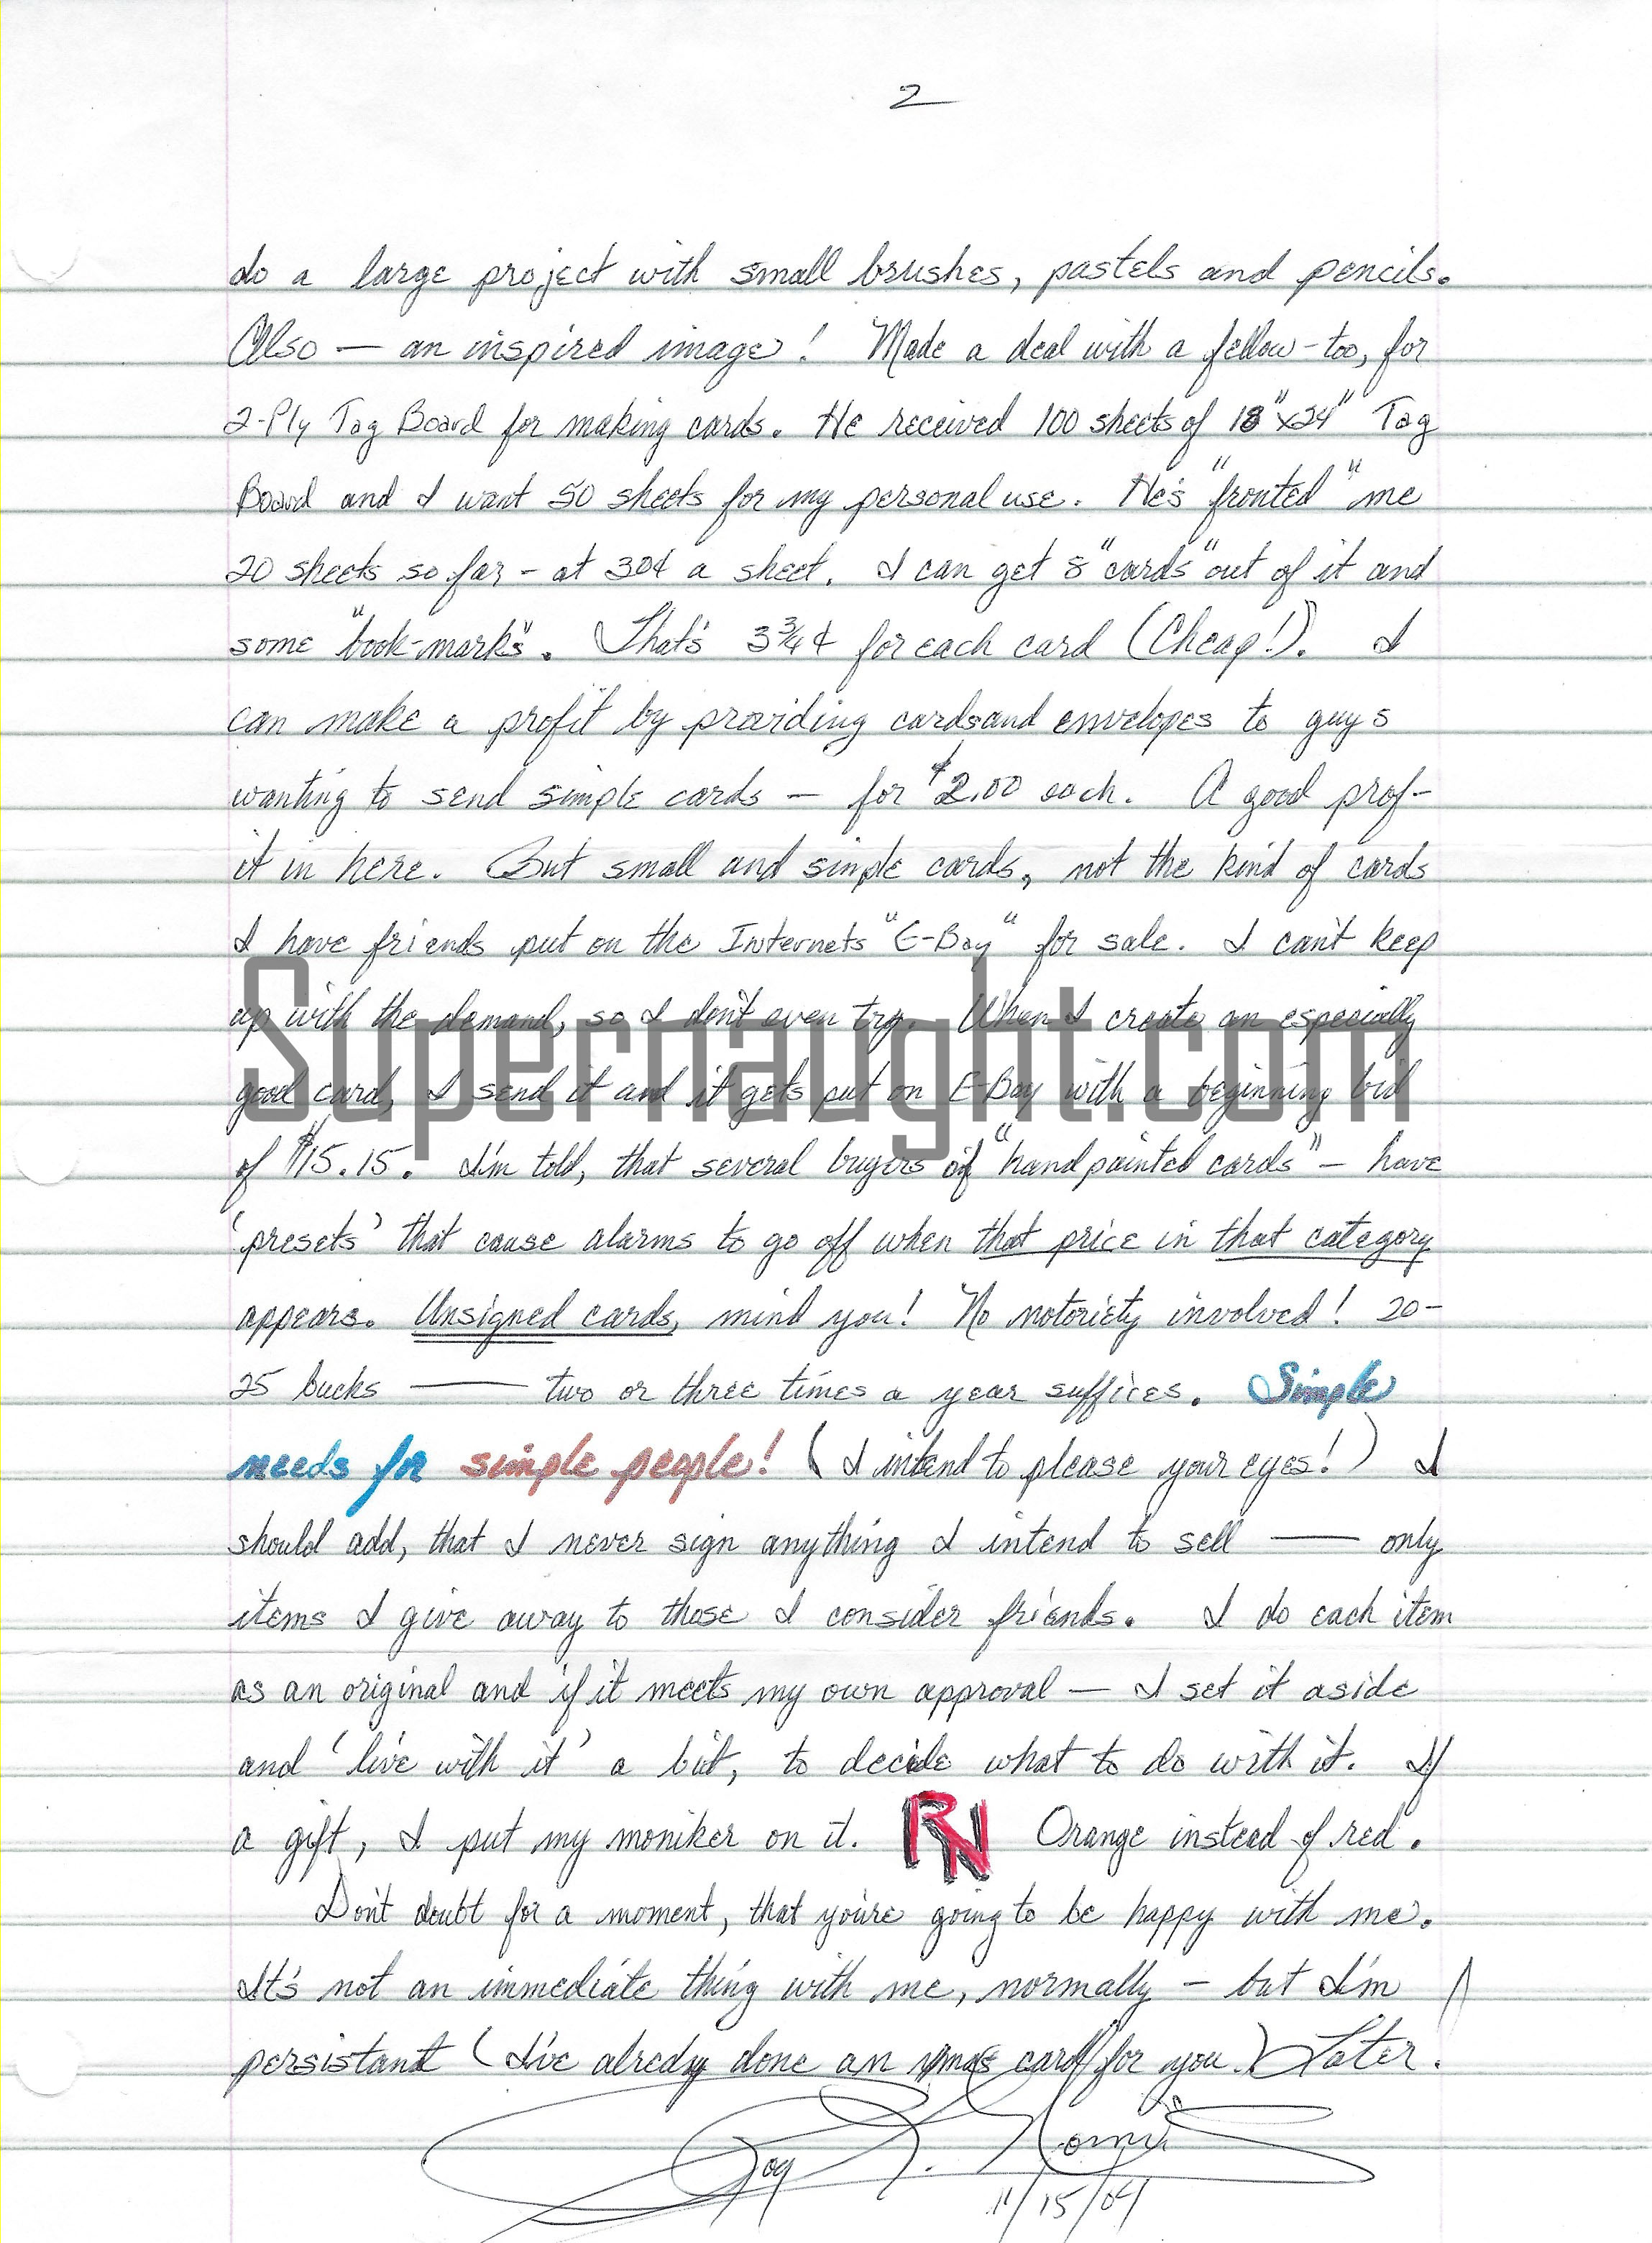 2
do a large project with small brushes, pastels and pencils.
Also — an inspired image! Made a deal with a fellow-too, for
2-Ply Tag Board for making cards. He received 100 sheets of 18"x24" Tag
Board and I want 50 sheets for my personal use. He's "fronted" me
20 sheets so far - at 30¢ a sheet. I can get 8 "cards" out of it and
some "book-marks". That's 3¾¢ for each card (Cheap!). I
can make a profit by providing cards and envelopes to guys
wanting to send simple cards — for $2.00 each. A good prof-
it in here. But small and simple cards, not the kind of cards
I have friends put on the Internets "E-Bay" for sale. I can't keep
up with the demand, so I don't even try. When I create an especially
good card, I send it and it gets put on E-Bay with a beginning bid
of $15.15. I'm told, that several buyers of "hand painted cards" — have
'presets' that cause alarms to go off when that price in that category
appears. Unsigned cards, mind you! No notoriety involved! 20-
25 bucks — two or three times a year suffices. Simple
needs for simple people! (I intend to please your eyes!) I
should add, that I never sign anything I intend to sell — only
items I give away to those I consider friends. I do each item
as an original and if it meets my own approval — I set it aside
and 'live with it' a bit, to decide what to do with it. If
a gift, I put my moniker on it. RN Orange instead of red.
Don't doubt for a moment, that you're going to be happy with me.
It's not an immediate thing with me, normally - but I'm
persistant (I've alredy done an xmas card for you.) Later.
Roy
11/15/04
Supernaught.com